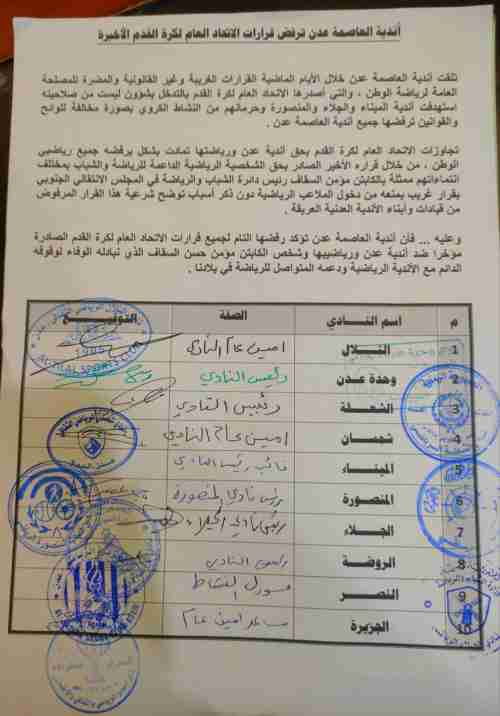 أندية العاصمة عدن ترفض قرارات الاتحاد العام لكرة القدم الأخيرة
تلقت أندية العاصمة عدن خلال الأيام الماضية القرارات الغريبة وغير القانونية والمضرة للمصلحة
العامة لرياضة الوطن ، والتي أصدرها الاتحاد العام لكرة القدم بالتدخل بشؤون ليست من صلاحيته
استهدفت أندية الميناء والجلاء والمنصورة وحرمانهم من النشاط الكروي بصورة مخالفة للوائح
والقوانين ترفضها جميع أندية العاصمة عدن .
تجاوزات الاتحاد العام لكرة القدم بحق أندية عدن ورياضتها تمادت بشكل يرفضه جميع رياضيي
الوطن ، من خلال قراره الأخير الصادر بحق الشخصية الرياضية الداعمة للرياضة والشباب بمختلف
انتماءاتهم ممثلة بالكابتن مؤمن السقاف رئيس دائرة الشباب والرياضة في المجلس الانتقالي الجنوبي
بقرار غريب بمنعه من دخول الملاعب الرياضية دون ذكر أسباب توضح شرعية هذا القرار المرفوض
من قيادات وأبناء الأندية العدنية العريقة .
وعليه ... فأن أندية العاصمة عدن تؤكد رفضها التام لجميع قرارات الاتحاد العام لكرة القدم الصادرة
مؤخرا ضد أندية عدن ورياضييها وشخص الكابتن مؤمن حسن السقاف الذي نبادله الوفاء لوقوفه
الدائم مع الأندية الرياضية ودعمه المتواصل للرياضة في بلادنا .
م اسم النادي الصفة التوقيع
1 التلال امين عام النادي
2 وحدة عدن رئيس النادي
3 الشعلة رئيس النادي
4 شمسان امين عام النادي
5 الميناء نائب رئيس النادي
6 المنصورة رئيس نادي المنصورة
7 الجلاء رئيس نادي الجلاء
8 الروضة رئيس النادي
9 النصر مسؤول النشاط
10 الجزيرة مساعد امين عام